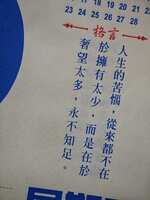 16 17 18 19 20 21
23 24 25 26 27 28
格言
人生的苦惱，從來都不在
於擁有太少，而是在於
奢望太多，永不知足。